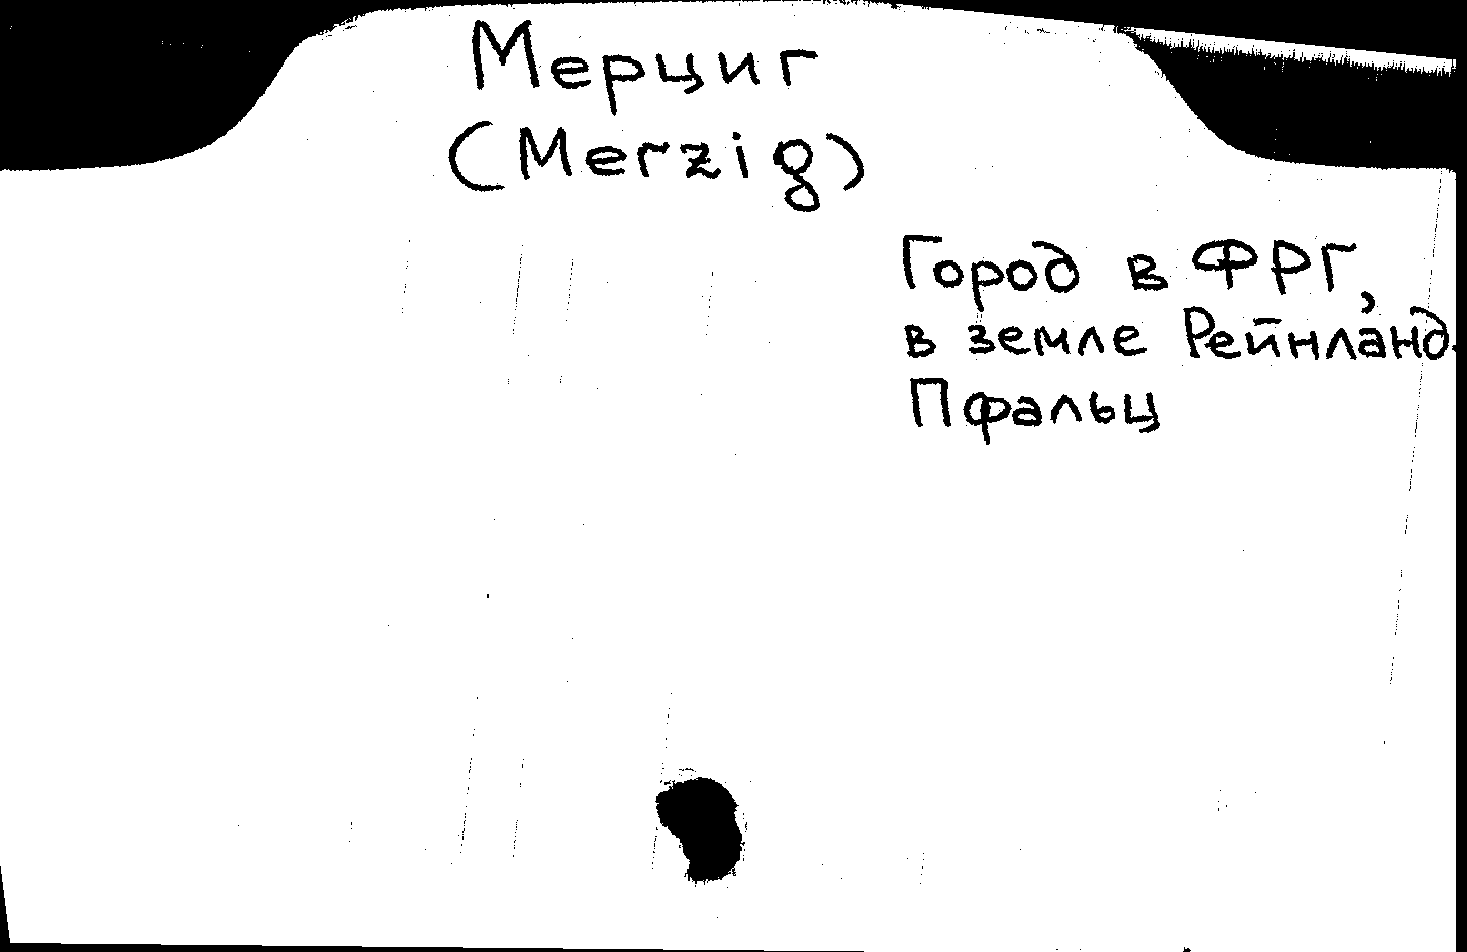 Мерциг
(Merzig)
Город в ФРГ,
в земле Рейнланд-
Пфальц